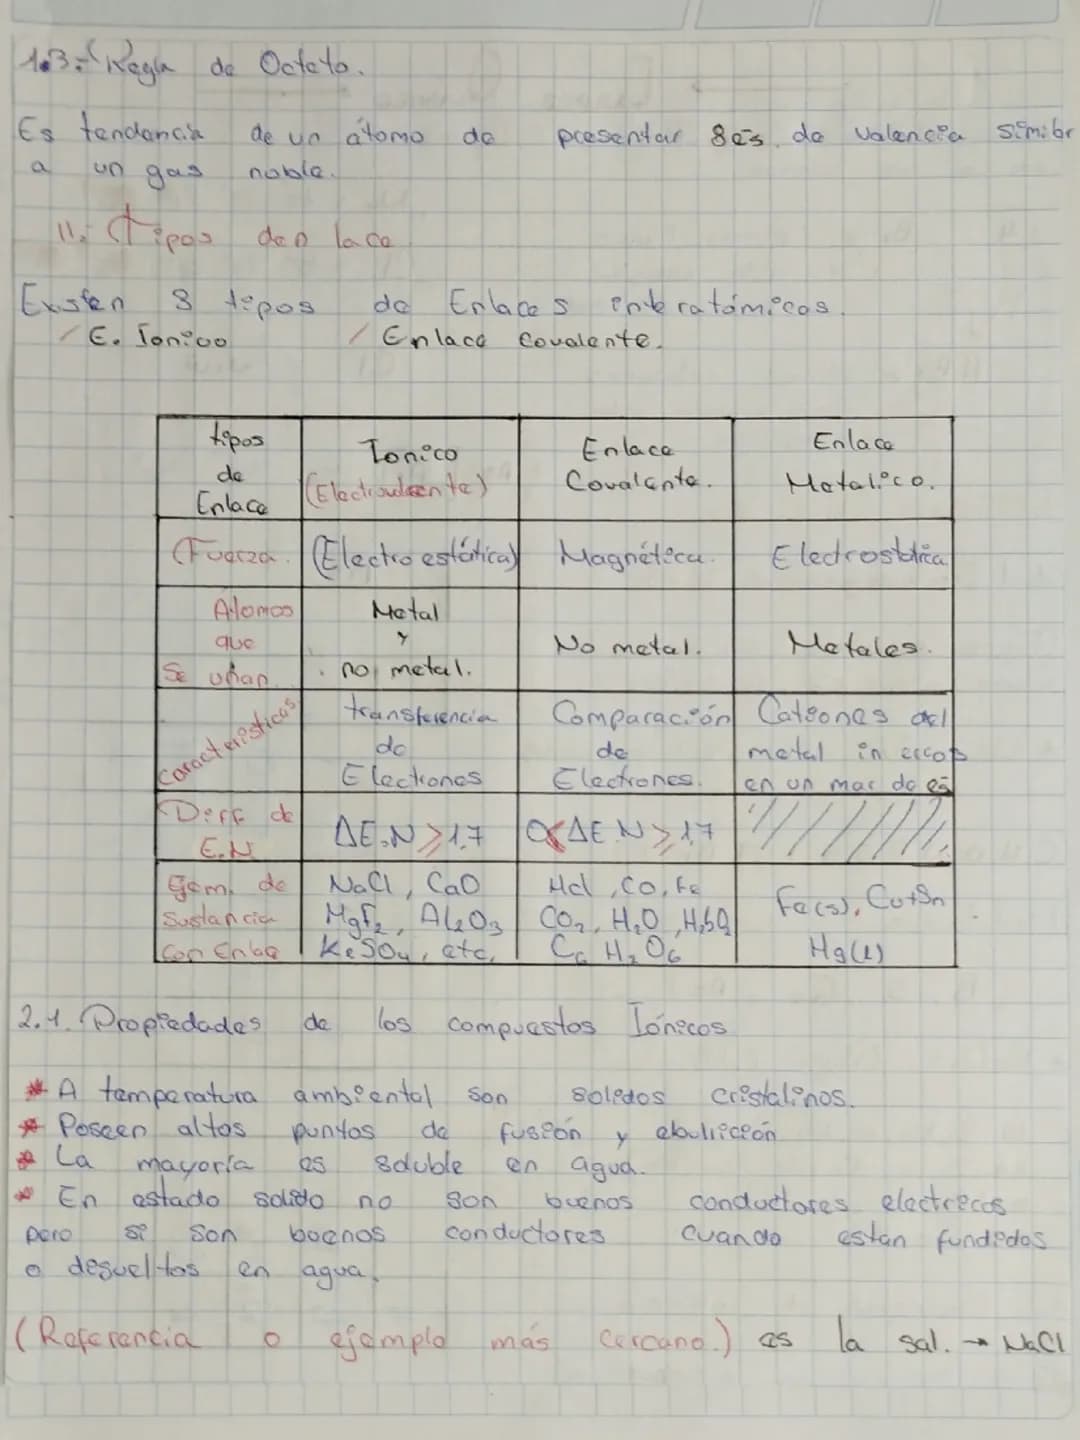 1.3.- Regla de Octeto.
Es tendencia de un átomo de presentar 8es de valencia similar
a un gas noble.
II.- Tipos den lace
Existen 3 tipos de Enlaces interatómicos.
/ E. Ionico / Enlace Covalente.
tipos de Enlace
Ionico
(Electrovalente)
Enlace
Covalente.
Enlace
Metalico.
(Fuerza.
(Electroestática)
Magnética.
Electrostática
Atomos
que
Se unan
Metal
y
no metal.
No metal.
Metales.
Caracteristicas
transferencia
de
Electrones
Comparación
de
Electrones.
Cationes del
metal
en un mar de es
Diff de
E.N
ΔE.N ≥ 1.7
ΔE.N ≥ 1.7
Ejem. de
Sustancia
con Enlace
NaCl, CaO
MgF2, Al2O3
KeSO4, etc.
Hcl, CO, Fe
CO2, H2O, H2SO4
C6 H2 O6
Fe(s), Cu+Sn
Hg(l)
2.1. Propiedades de los compuestos Iónicos
* A temperatura ambiental son solidos cristalinos.
* Poseen altos puntos de fusión y ebullición
* La mayoría es soluble en agua.
* En estado solido no son buenos conductores electricos
pero si son buenos conductores cuando estan fundidos
o desueltos en agua.
(Referencia o ejemplo más cercano.) es la sal. → NaCl